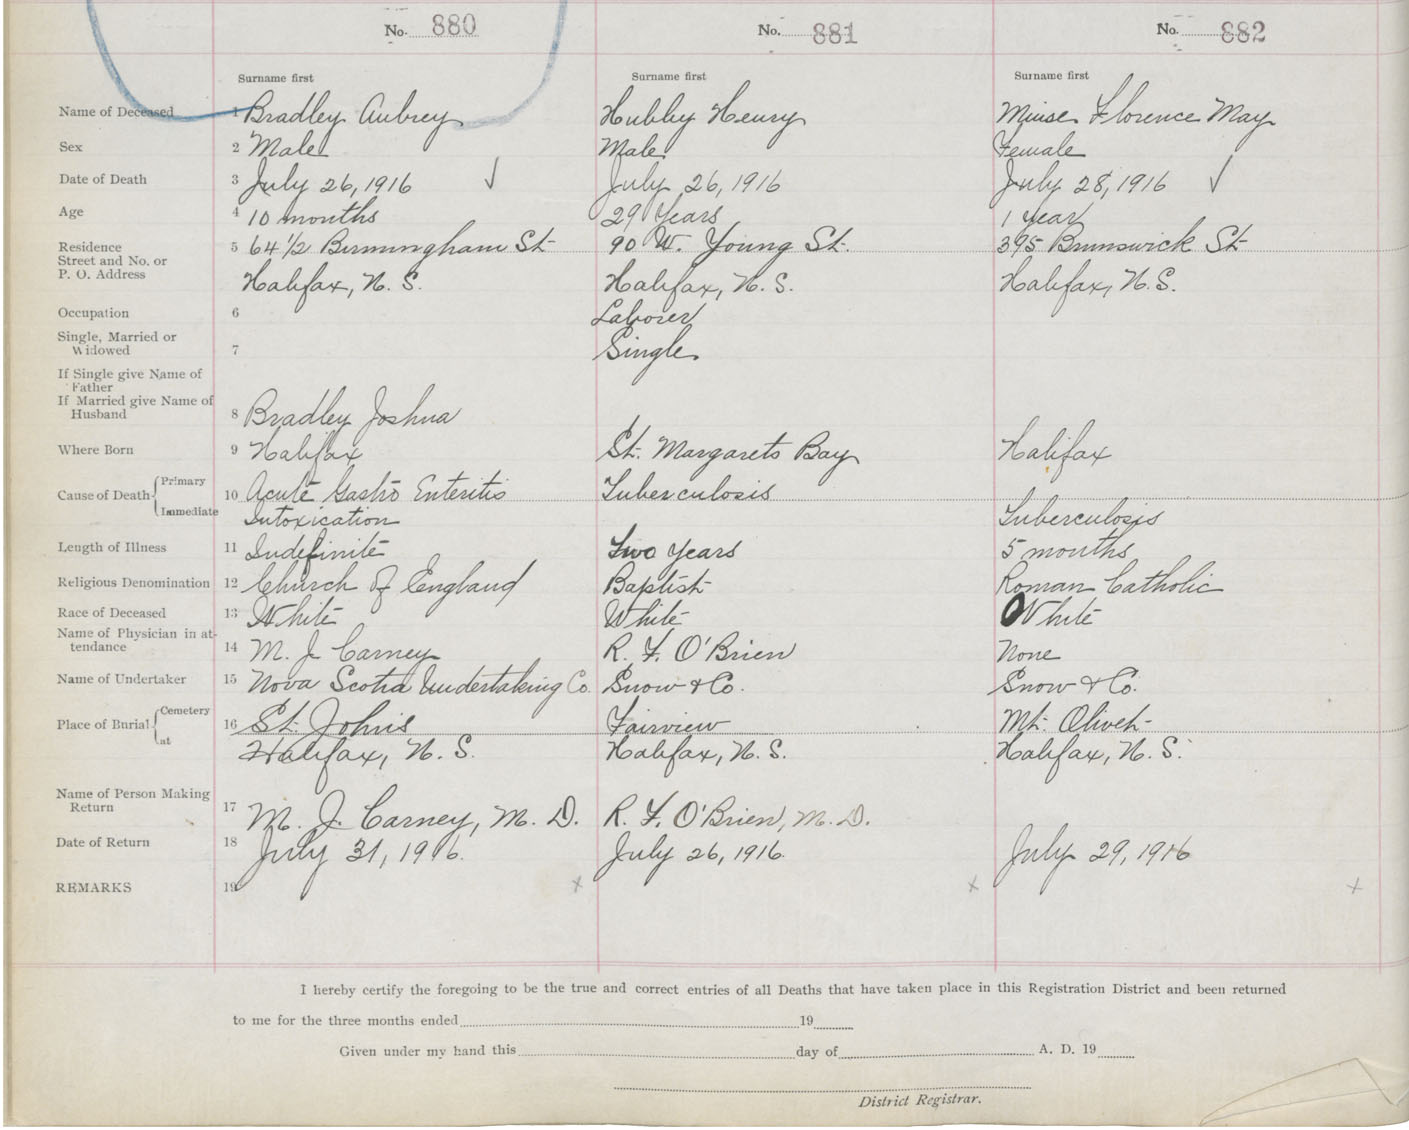 No. 880 No. 881 No. 882
Surname first Surname first Surname first
Name of Deceased 1 Bradley Aubrey Hubley Henry Muise Florence May
Sex 2 Male Male Female
Date of Death 3 July 26, 1916 ✓ July 26, 1916 July 28, 1916 ✓
Age 4 10 months 29 Years 1 year
Residence 5 64 1/2 Birmingham St. 90 W. Young St. 395 Brunswick St.
Street and No. or
P. O. Address Halifax, N. S. Halifax, N. S. Halifax, N. S.
Occupation 6 Laborer
Single, Married or
Widowed 7 Single
If Single give Name of
Father
If Married give Name of
Husband 8 Bradley Joshua
Where Born 9 Halifax St. Margarets Bay Halifax
Primary
Cause of Death 10 Acute Gastro Enteritis Tuberculosis
Immediate Intoxication Tuberculosis
Length of Illness 11 Indefinite Two years 5 months
Religious Denomination 12 Church of England Baptist Roman Catholic
Race of Deceased 13 White White White
Name of Physician in at-
tendance 14 M. J. Carney R. F. O'Brien None
Name of Undertaker 15 Nova Scotia Undertaking Co. Snow & Co. Snow & Co.
Cemetery
Place of Burial 16 St. Johns Fairview Mt. Olivet
at Halifax, N. S. Halifax, N. S. Halifax, N. S.
Name of Person Making
Return 17 M. J. Carney, M. D. R. F. O'Brien, M. D.
Date of Return 18 July 31, 1916. July 26, 1916. July 29, 1916
REMARKS 19 x x x
I hereby certify the foregoing to be the true and correct entries of all Deaths that have taken place in this Registration District and been returned
to me for the three months ended 19
Given under my hand this day of A. D. 19
District Registrar.